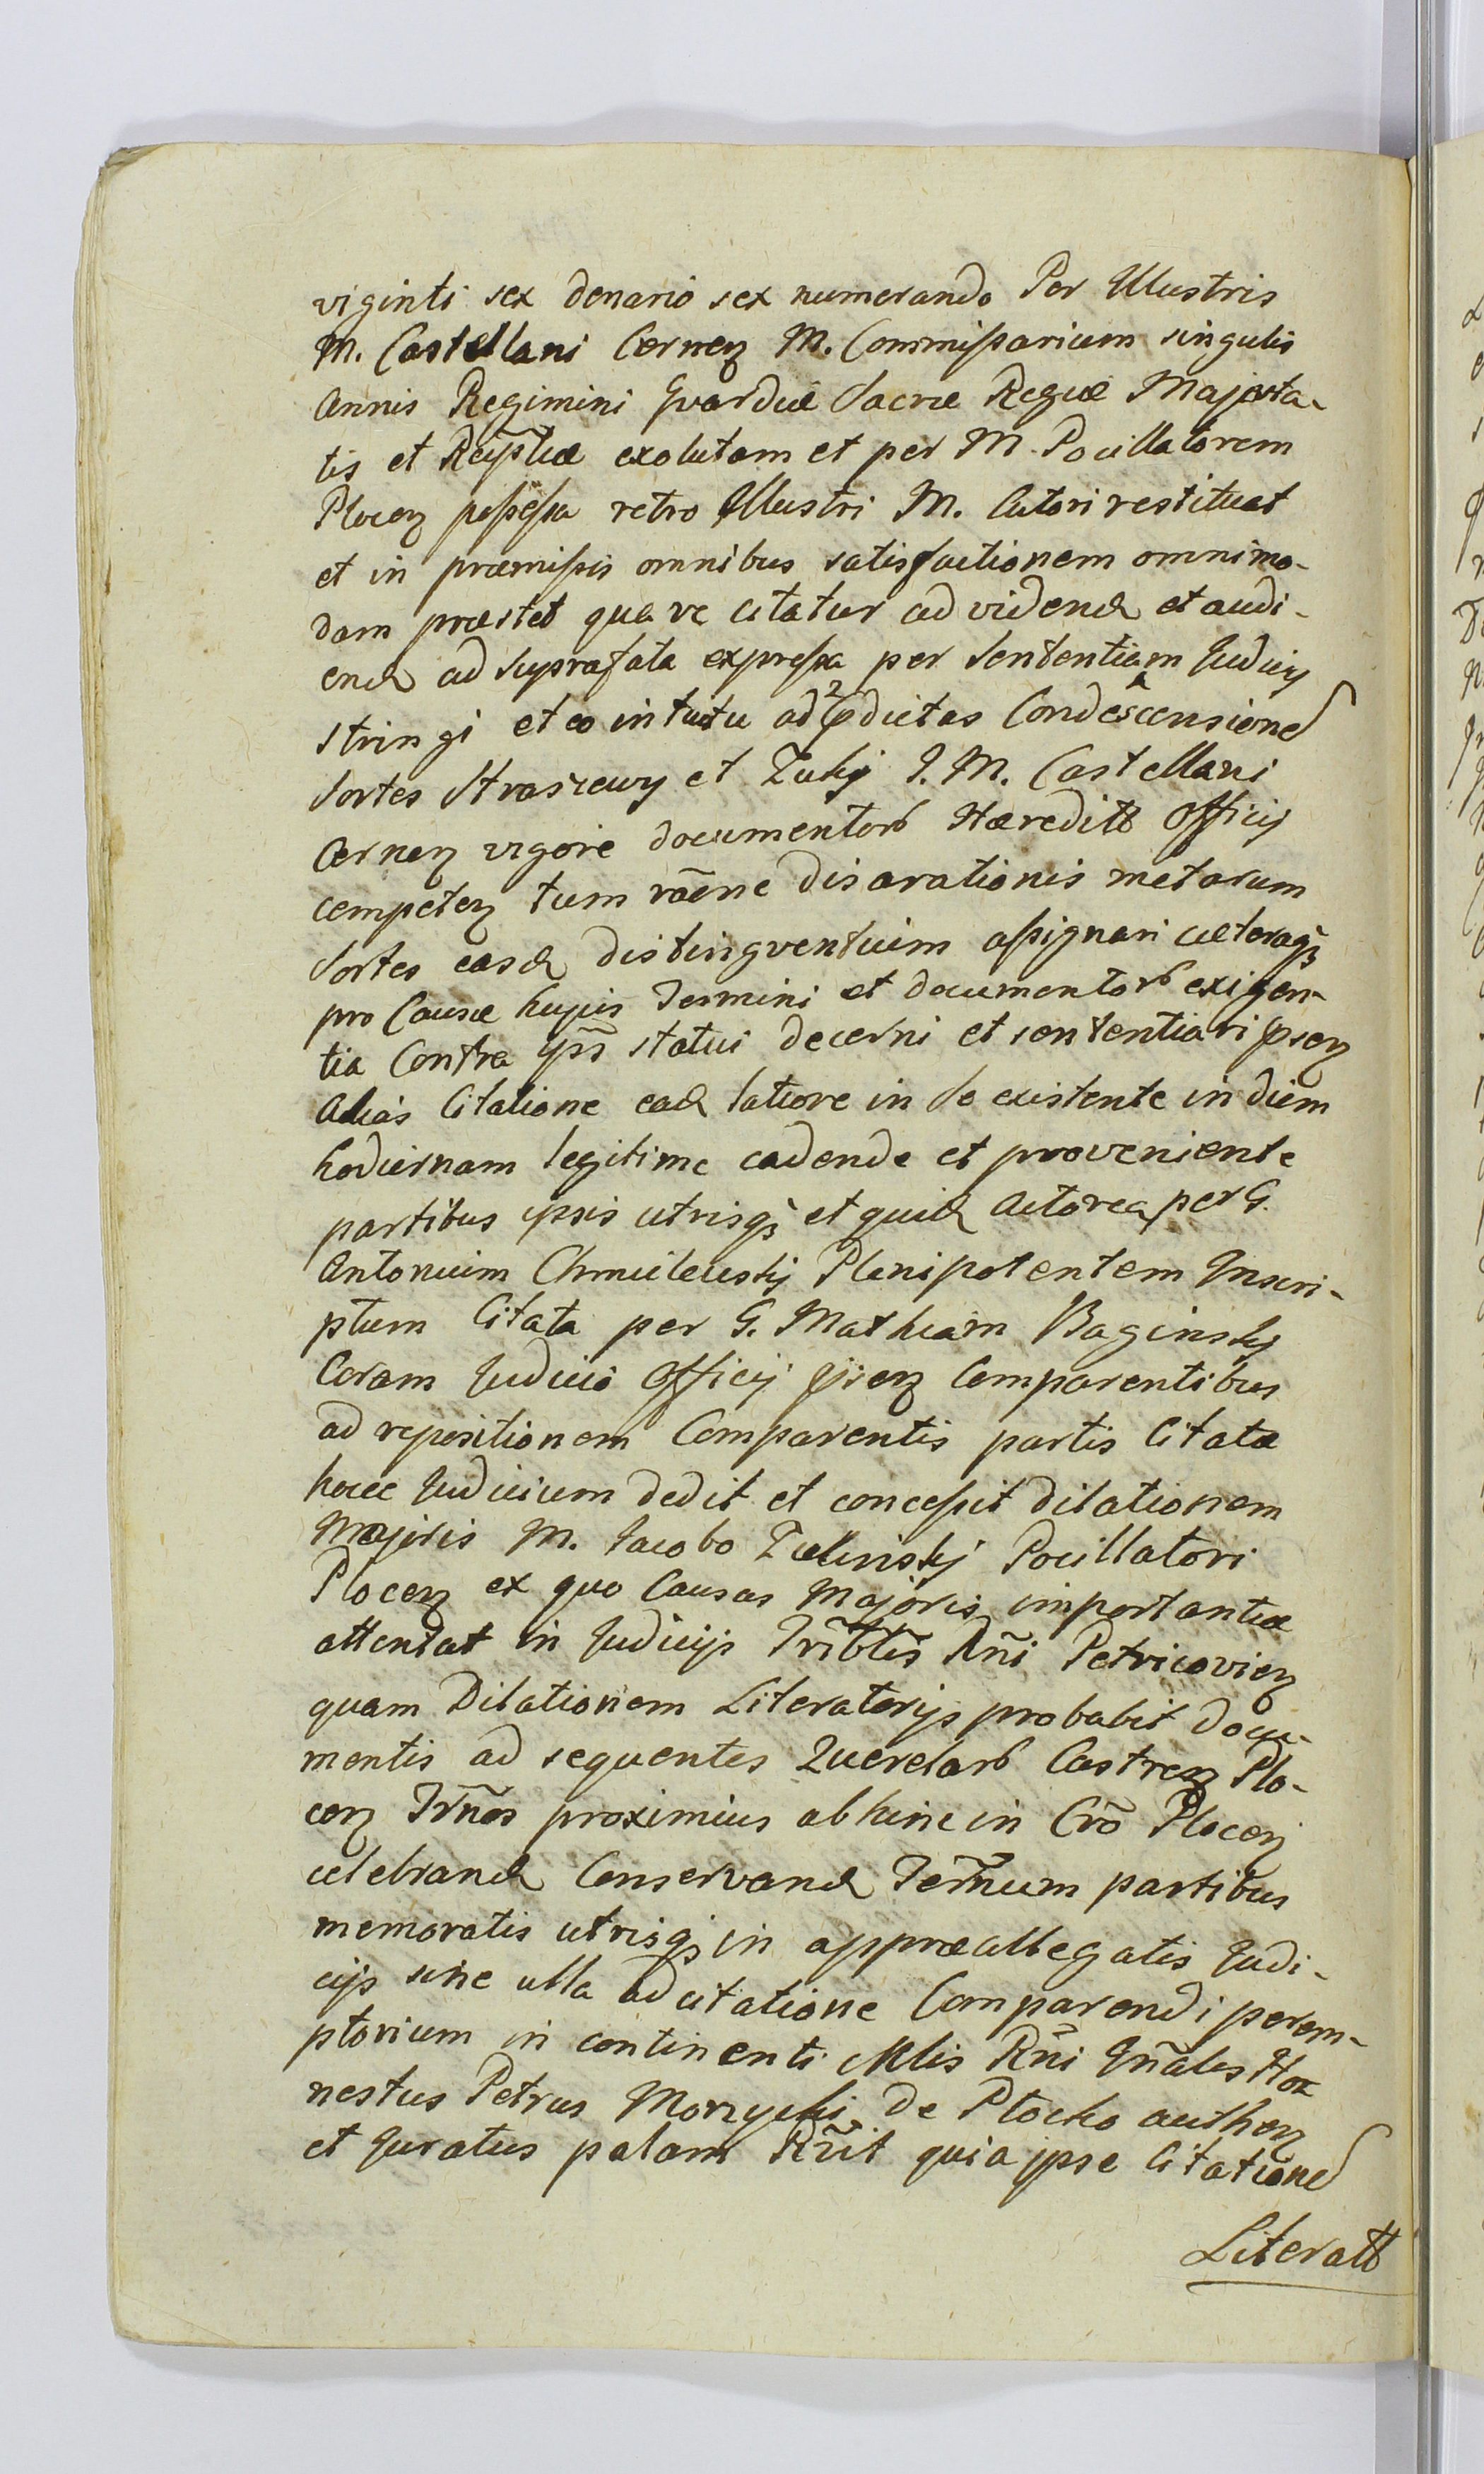 viginti sex denario sex numerando Per Illustris
M. Castellani Cernen M. Commissarium singulis
Annis Regimini Gvardiæ Sacræ Regiæ Majesta-
tis et Reipblicæ exolutam et per M. Pocillatorem
Plocen possessa retro Illustri M. Actori restituat
et in præmissis omnibus satisfactionem omnimo-
dam præstet qua re citatur ad videnđ et audi-
enđ ad suprafata expressa per Sententiam Judicy
stringi et eo intuitu ad pdictas Condescensioneɔ
Sortes Straszewy et Zuky I. M. Castellani
Cernen vigore documentorꝭ Hæreditt Officij
competen tum rãene disarationis metarum
Sortes easđ distingventium assignari cæteraqʒ
pro Causæ hujus Termini et documentorꝭ exigen-
tia Contra ips̃ statui decerni et sententiari psen
Alias Citatione eađ latiore in se existente in diem
hodiernam legitime cadende et proveniente
partibus ipsis utrisqʒ et quiđ Actorea per G.
Antonium Chmielewskj Plenipotentem Inscri-
ptum Citata per G. Mathiam Baginsky
Coram Judicio Officij psen Comparentibus
ad repositionem Comparentis partis Citatæ
hocce Judicium dedit et concessit dilationem
Majoris M. Jacobo Zulinskj Pocillatori
Plocen ex quo Causas Majoris importantiæ
attentat in Judicijs Tribtlis̃ Rñi Petricovien
quam Dilationem Literatorijs probabit docu-
mentis ad sequentes Querelarꝭ Castren Plo-
cen Trm̃nos proximius abhinc in Crõ Plocen
celebranđ Conservanđ Term̃num partibus
memoratis utrisqʒ in appræallegatis Judi-
cijs sine ulla adcitatione Comparendi perem-
ptorium in continenti Mlis Rñi Gñales Ho-
nestus Petrus Morzycki de Płocko authen
et Juratus palam Rz̃it quia ipse Citationeɔ
Literatt